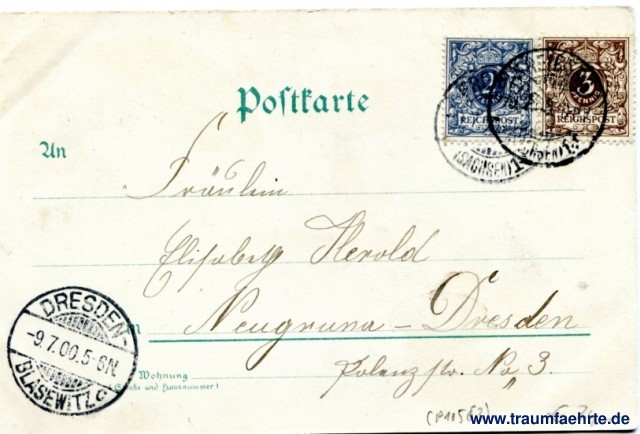 2
REICHSPOST
3
PFENNIG
REICHSPOST
(SACHSEN) 1
Postkarte
An
Fräulein
Elisabeth Herold
in Neugruna-Dresden
Polenzstr. No 3.
Wohnung
(Straße und Hausnummer)
DRESDEN-
-9.7.00.5-6N.
BLASEWITZ c
www.traumfaehrte.de